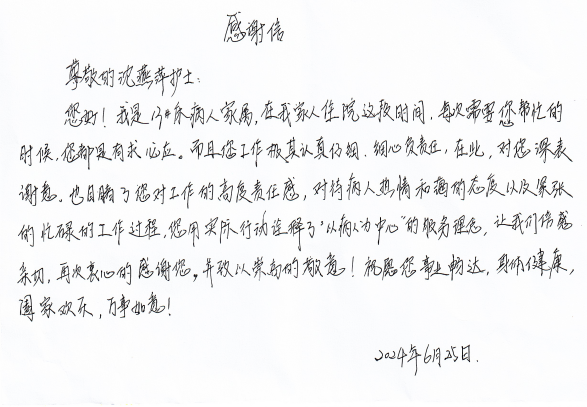 感谢信
尊敬的沈燕萍护士：
您好！我是13#床病人家属，在我家人住院这段时间，每次需要您帮忙的
时候，您都是有求必应。而且您工作极其认真仔细、细心负责任，在此，对您深表
谢意。也目睹了您对工作的高度责任感，对待病人热情和蔼的态度以及紧张
的忙碌的工作过程，您用实际行动诠释了“以病人为中心”的服务理念，让我们倍感
亲切，再次衷心的感谢您。并致以崇高的敬意！祝愿您事业畅达，身体健康，
阖家欢乐，万事如意！
2024年6月25日.